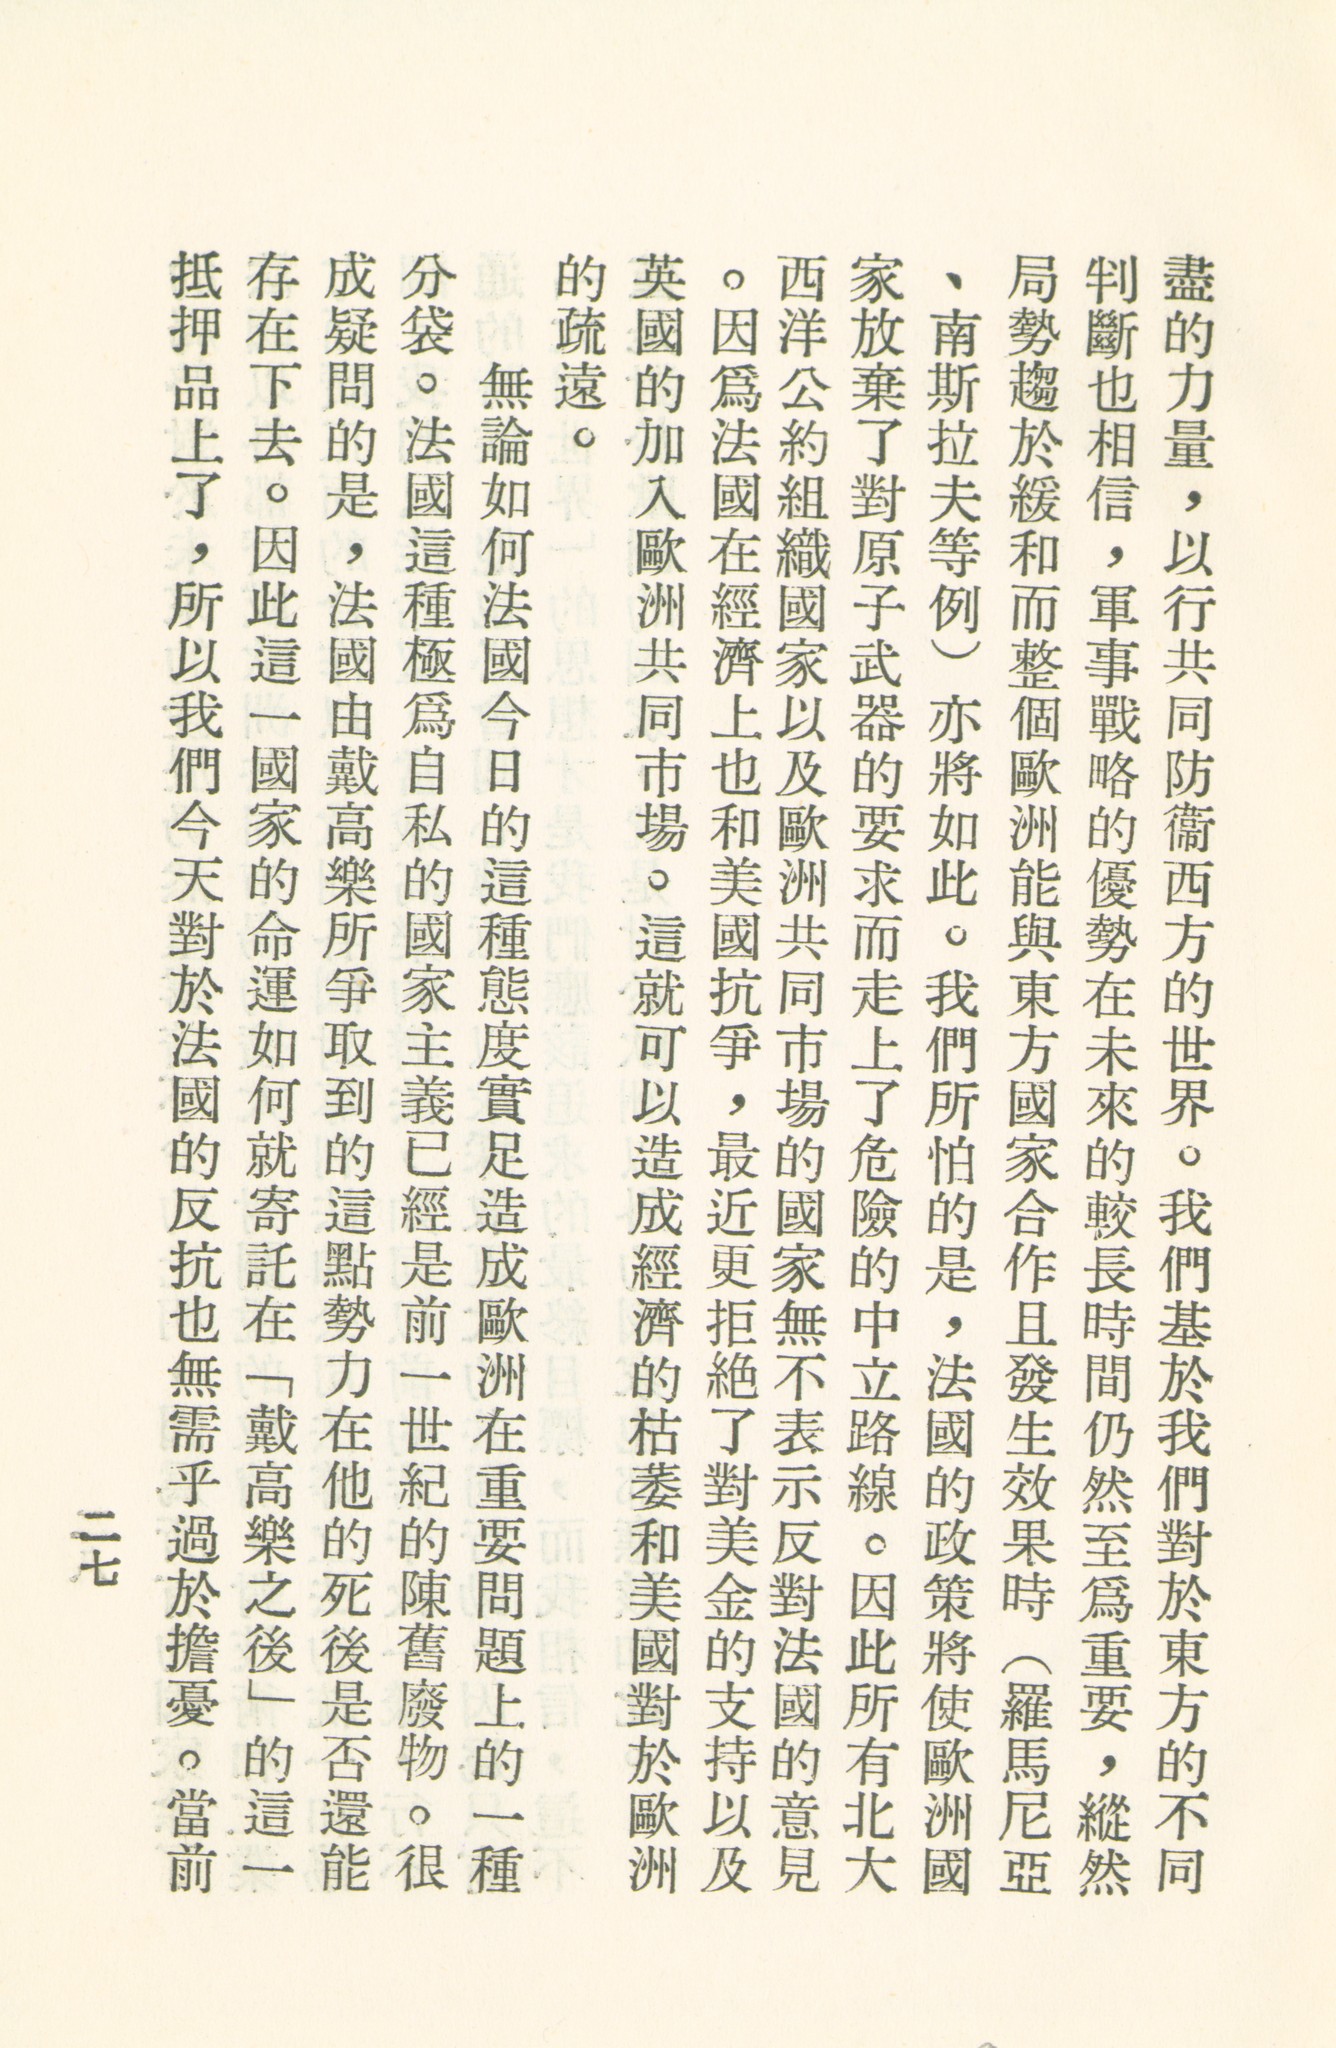 盡的力量，以行共同防衞西方的世界。我們基於我們對於東方的不同
判斷也相信，軍事戰略的優勢在未來的較長時間仍然至爲重要，縱然
局勢趨於緩和而整個歐洲能與東方國家合作且發生效果時（羅馬尼亞
、南斯拉夫等例）亦將如此。我們所怕的是，法國的政策將使歐洲國
家放棄了對原子武器的要求而走上了危險的中立路線。因此所有北大
西洋公約組織國家以及歐洲共同市場的國家無不表示反對法國的意見
。因爲法國在經濟上也和美國抗爭，最近更拒絕了對美金的支持以及
英國的加入歐洲共同市場。這就可以造成經濟的枯萎和美國對於歐洲
的疏遠。
無論如何法國今日的這種態度實足造成歐洲在重要問題上的一種
分袋。法國這種極爲自私的國家主義已經是前一世紀的陳舊廢物。很
成疑問的是，法國由戴高樂所爭取到的這點勢力在他的死後是否還能
存在下去。因此這一國家的命運如何就寄託在「戴高樂之後」的這一
抵押品上了，所以我們今天對於法國的反抗也無需乎過於擔憂。當前
二七